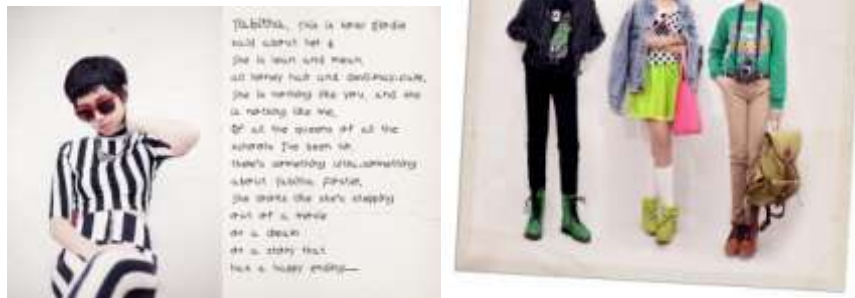 Tabitha, this is what Birdie
said about her &
she is lean and mean,
all honey hair and devil-may-care,
she is nothing like you, and she
is nothing like me,
of all the queens of all the
schools I've been to,
there's something
about Tabitha
she looks like she's stepping
out of a movie
or a dream
or a story that
has a happy ending—